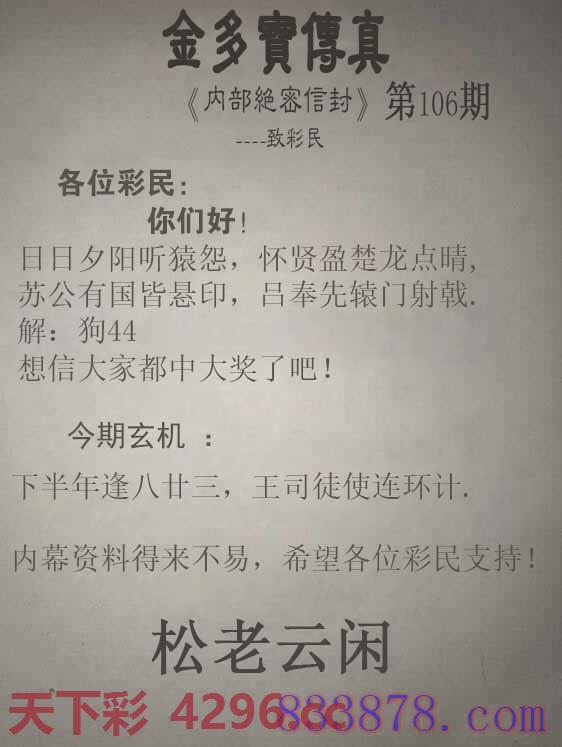 金多寶傳真
《内部絶密信封》第106期
----致彩民
各位彩民:
你们好!
日日夕阳听猿怨，怀贤盈楚龙点晴,
苏公有国皆悬印，吕奉先辕门射戟.
解：狗44
想信大家都中大奖了吧!
今期玄机 ：
下半年逢八廿三，王司徒使连环计.
内幕资料得来不易，希望各位彩民支持!
松老云闲
天下彩 4296.cc
883878.com